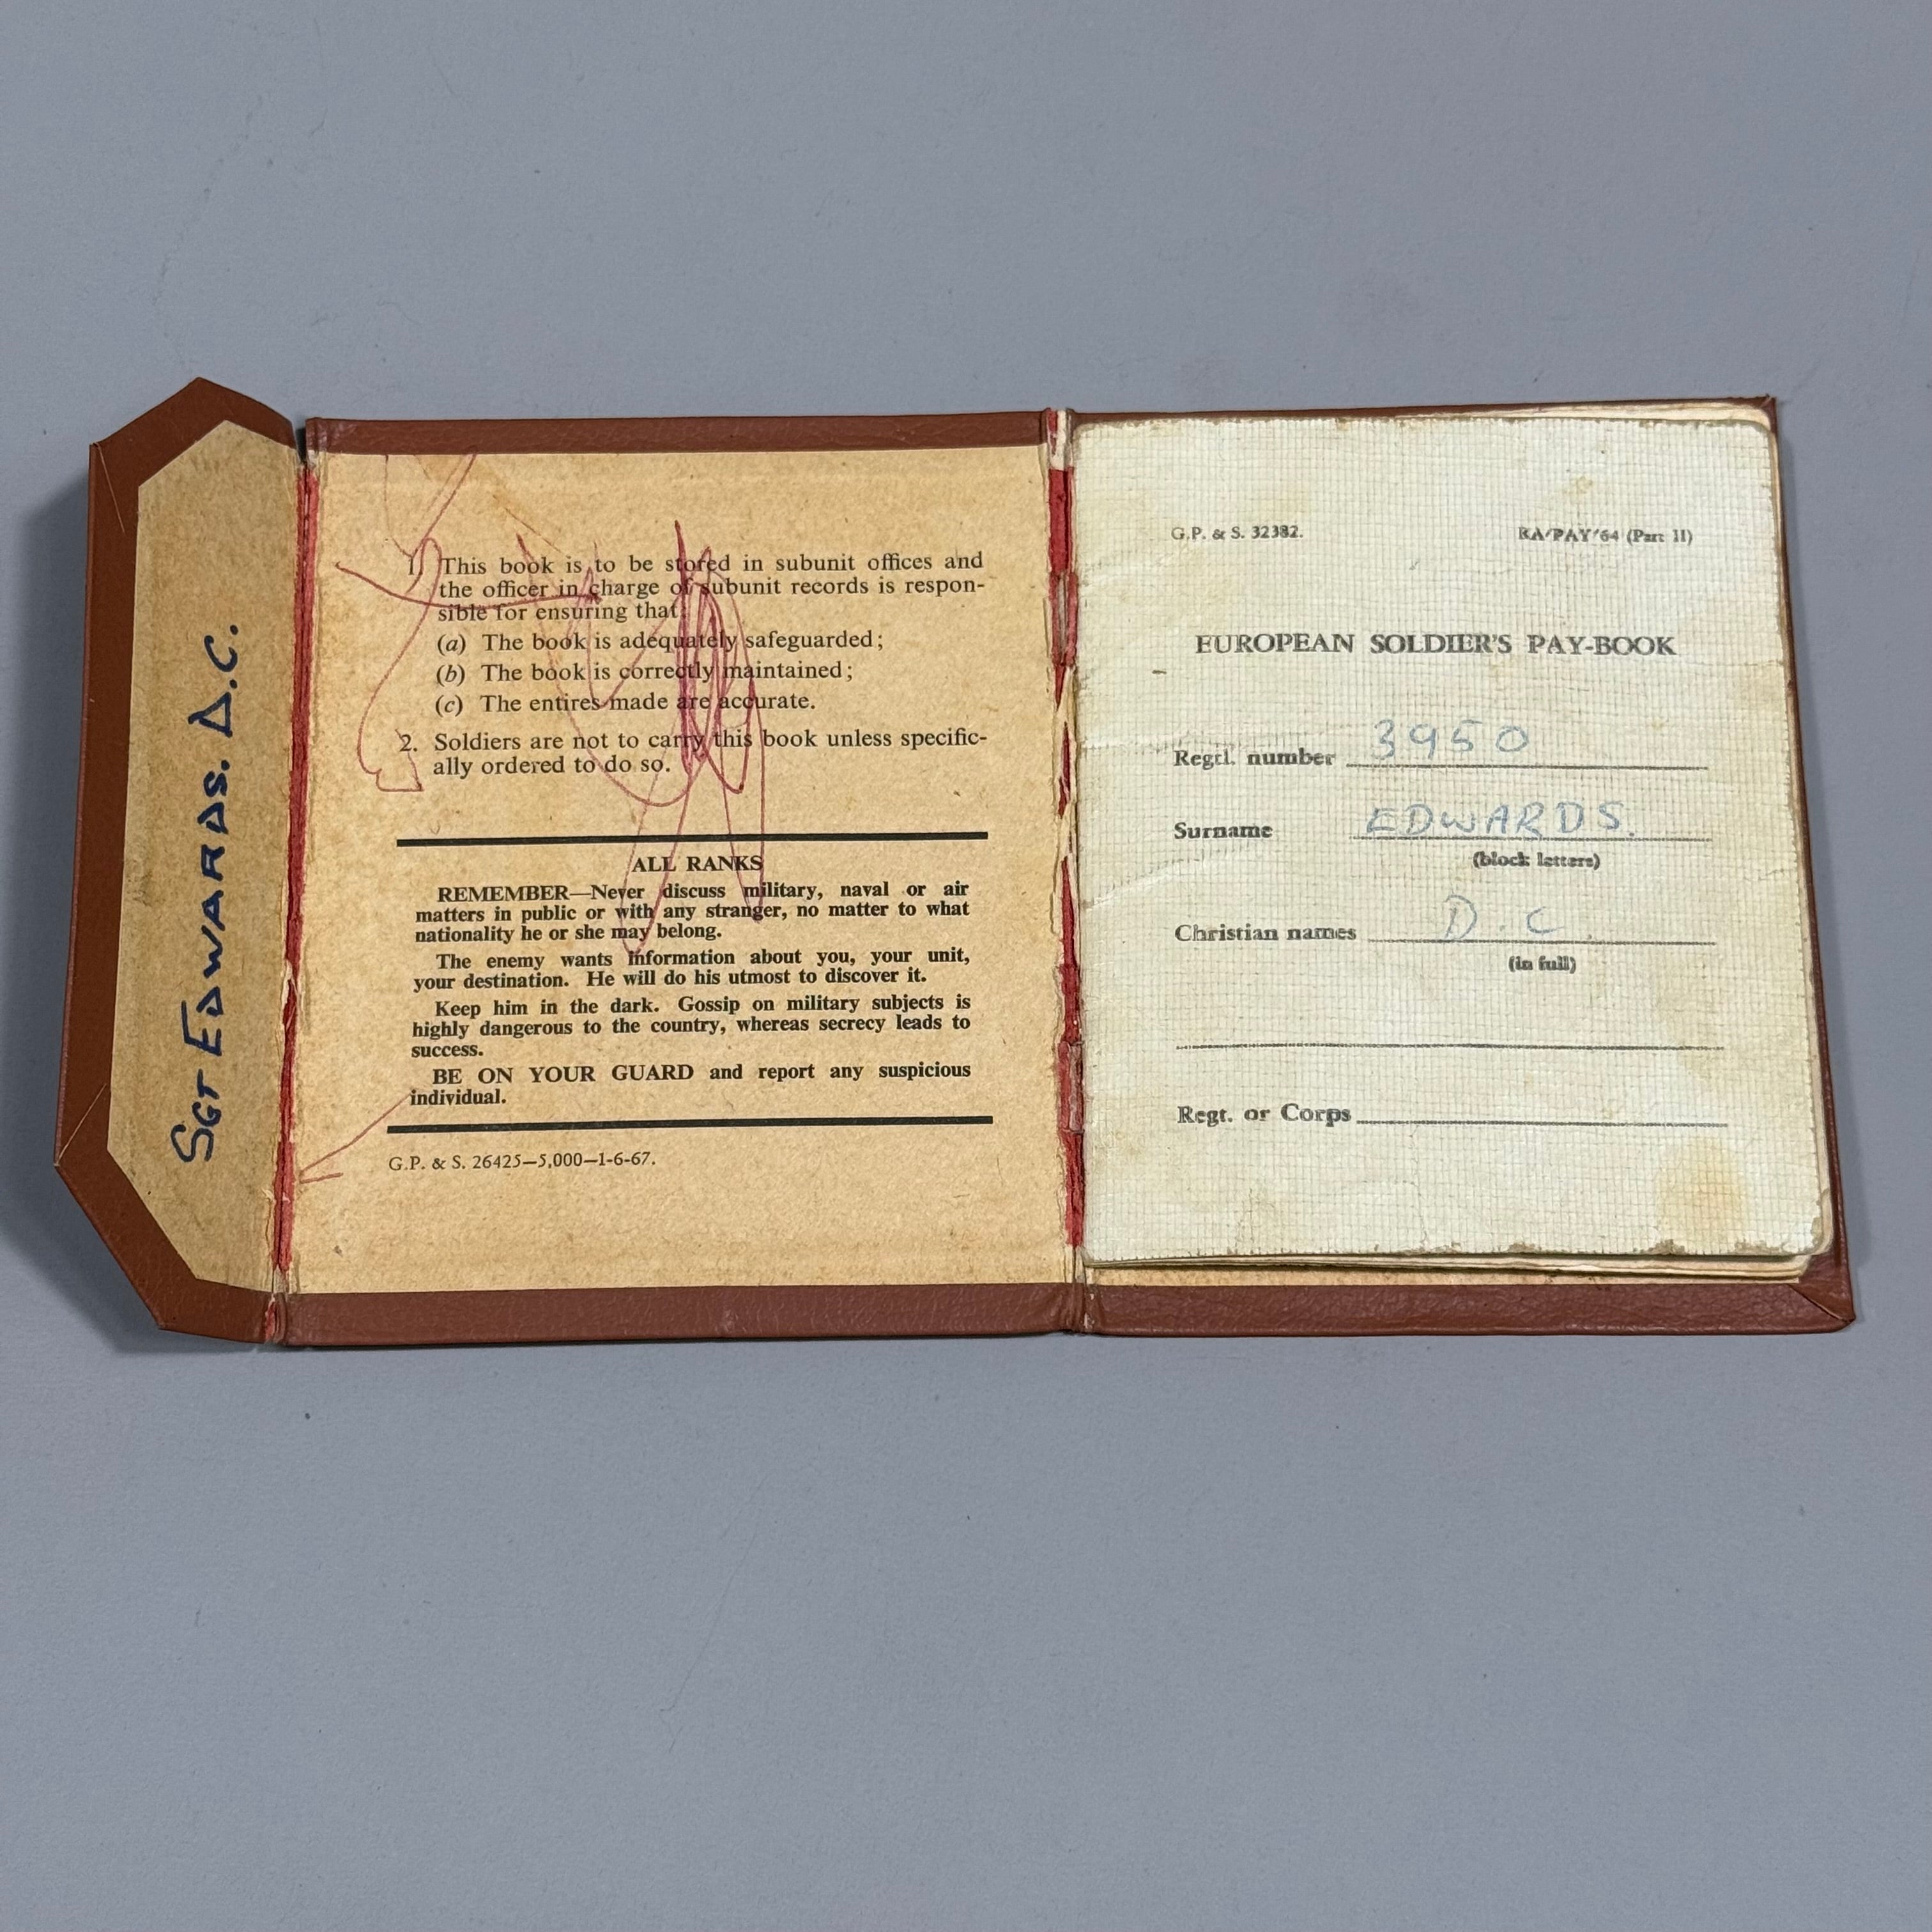 SGT EDWARDS. D.C.
1) This book is to be stored in subunit offices and
the officer in charge of subunit records is respon-
sible for ensuring that:
(a) The book is adequately safeguarded;
(b) The book is correctly maintained;
(c) The entires made are accurate.
2. Soldiers are not to carry this book unless specific-
ally ordered to do so.
ALL RANKS
REMEMBER—Never discuss military, naval or air
matters in public or with any stranger, no matter to what
nationality he or she may belong.
The enemy wants information about you, your unit,
your destination. He will do his utmost to discover it.
Keep him in the dark. Gossip on military subjects is
highly dangerous to the country, whereas secrecy leads to
success.
BE ON YOUR GUARD and report any suspicious
individual.
G.P. & S. 26425—5,000—1-6-67.
G.P. & S. 32382. RA/PAY/64 (Part II)
EUROPEAN SOLDIER'S PAY-BOOK
Regtl. number 3950
Surname EDWARDS.
(block letters)
Christian names D.C.
(in full)
Regt. or Corps